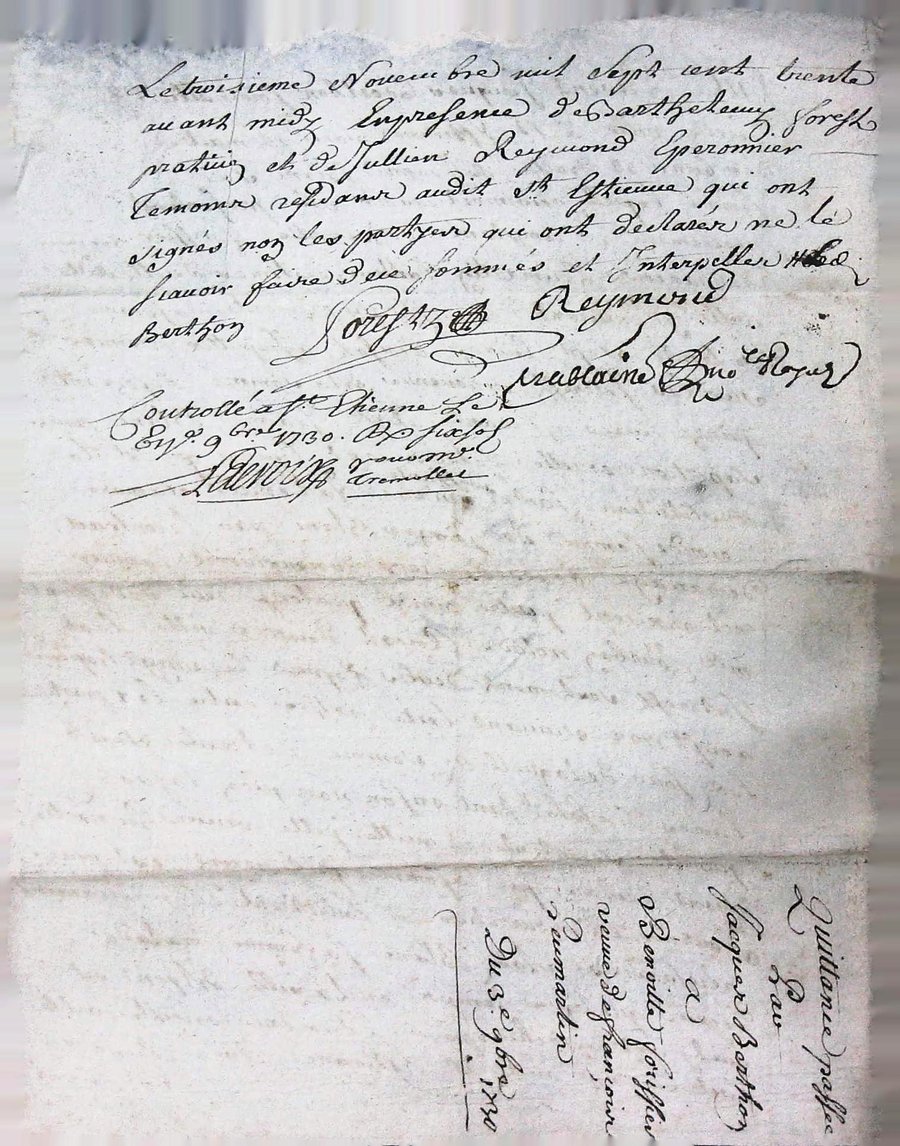 Le troisieme Novembre mil sept cent trente
avant midy En presence de Barthelemy forest
praticien et de Jullien Reymond Eperonnier
Temoins residans audit St. Estienne qui ont
signés non les partyes qui ont declarés ne le
scavoir faire de ce sommés et Interpellés
Berthon
forest Reymond
no.re Royal
Controllé a St. Etienne Le
9bre 1730. six sols
Quittance passée
Par
Jacques Berthon
a
Benoitte
veuve de francois
Du 3.e 9bre 1730